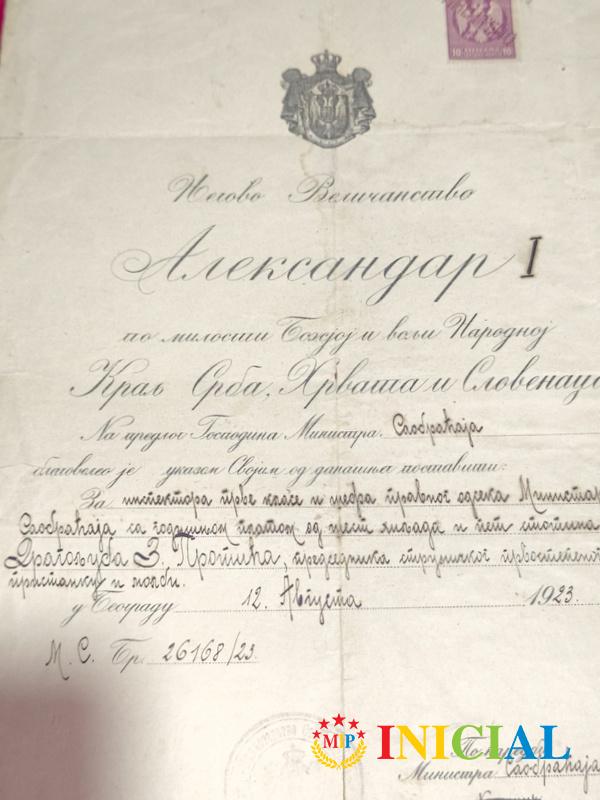 10 10
Његово Величанство
Александар I
по милости Божјој и вољи Народној
Краљ Срба, Хрвата и Словенаца
На предлог Господина Министра Саобраћаја
благоволео је указом Својим од данашња поставити:
За инспектора прве класе и шефа правног одсека Министар
Саобраћаја са годишњом платом од шест хиљада и пет стотина
Драгољуба З. Протића, председника стручног првостепеног
пристанку и молби.
у Београду 12. Августа 1923.
М. С. Бр. 26168/23.
По наредби
Министра Саобраћаја
MIP INICIAL